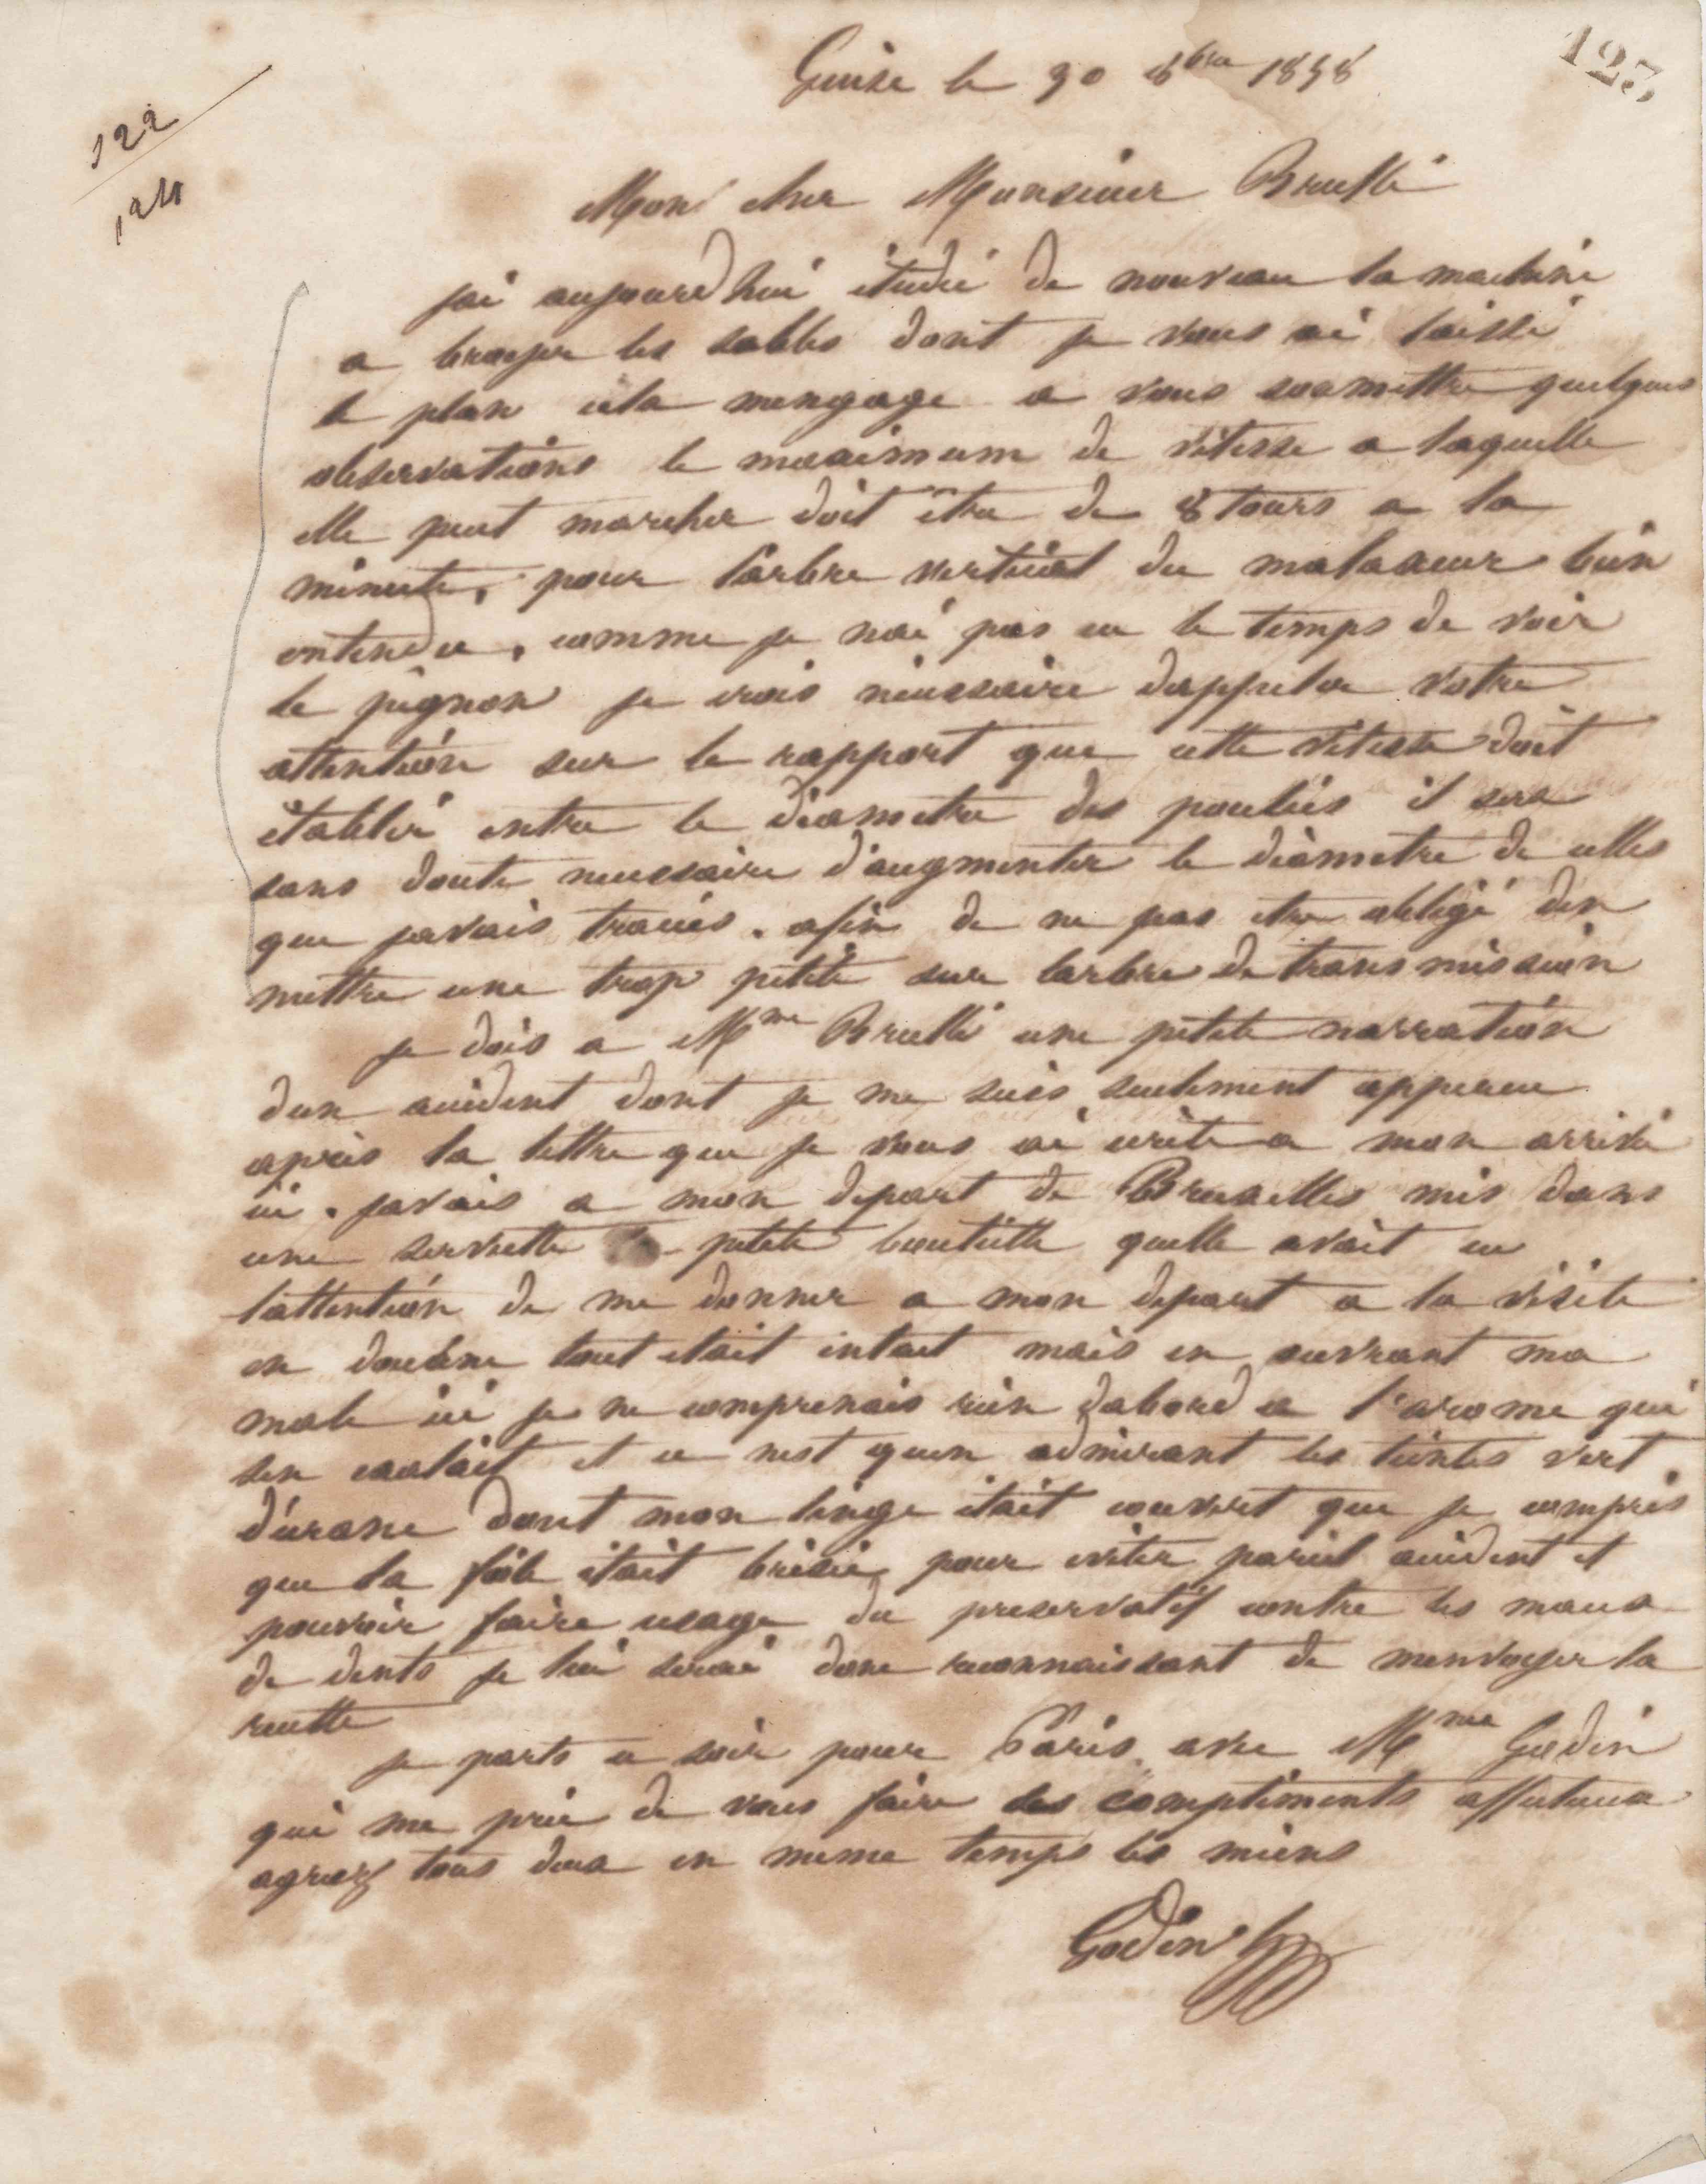 123
122
124
Guise le 30 8bre 1858
Mon cher Monsieur Brullé
jai aujourdhui étudié de nouveau la machine
a broyer les sables dont je vous ai laissé
le plan cela mengage a vous soumettre quelques
observations le maximum de vitesse a laquelle
elle peut marcher doit être de 8 tours a la
minute, pour l'arbre vertical du malaxeur bien
entendu, comme je nai pas eu le temps de voir
le pignon je crois nécessaire dappeler votre
attention sur le rapport que cette vitesse doit
établir entre le diametre des poulies il sera
sans doute necessaire d'augmenter le diametre de celles
que javais tracées. afin de ne pas etre obligé den
mettre une trop petite sur larbre de transmission
je dois a Mme Brullé une petite narration
dun accident dont je me suis seulement apperçu
après la lettre que je vous ai écrite a mon arrivée
ici. javais a mon depart de Bruxelles mis dans
une serviette petite bouteille quelle avait eu
lattention de me donner a mon depart a la visite
en douane tout etait intact mais en ouvrant ma
male ici je ne comprenais rien dabord a l'arome qui
sen exalait et ce nest quen admirant les teintes vert
d'urane dont mon linge était couvert que je compris
que la fiole était brisée, pour eviter pareil accident et
pouvoir faire usage du preservatif contre les maux
de dents je lui serai donc reconnaissant de menvoyer la
recette
je parts ce soir pour Paris avec Mme Godin
qui me prie de vous faire ses compliments affectueux
agreez tous deux en meme temps les miens
Godin